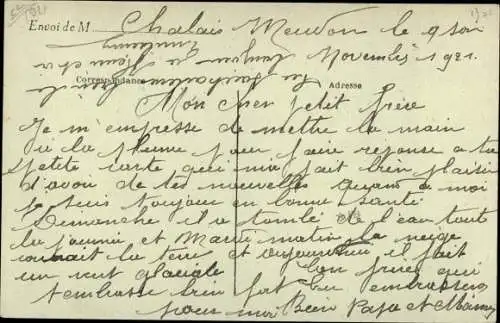 Envoi de M
Chalais Meudon le 9 
Novembre 1921.
Correspondance
Adresse
Mon cher petit frère
Je m'empresse de mettre la main
a la plume pour faire reponse a ta
petite carte qui ma fait bien plaisir
d'avoir de tes nouvelles quand a moi
je suis toujour en bonne santé
Dimanche il a tombé de l'eau toute
la journée et Mardi matin la neige
la terre et aujourdhui il fait
un vent glaciale Ton frère qui
t'embrasse bien fort embrasse
pour moi Bien Papa et Maman